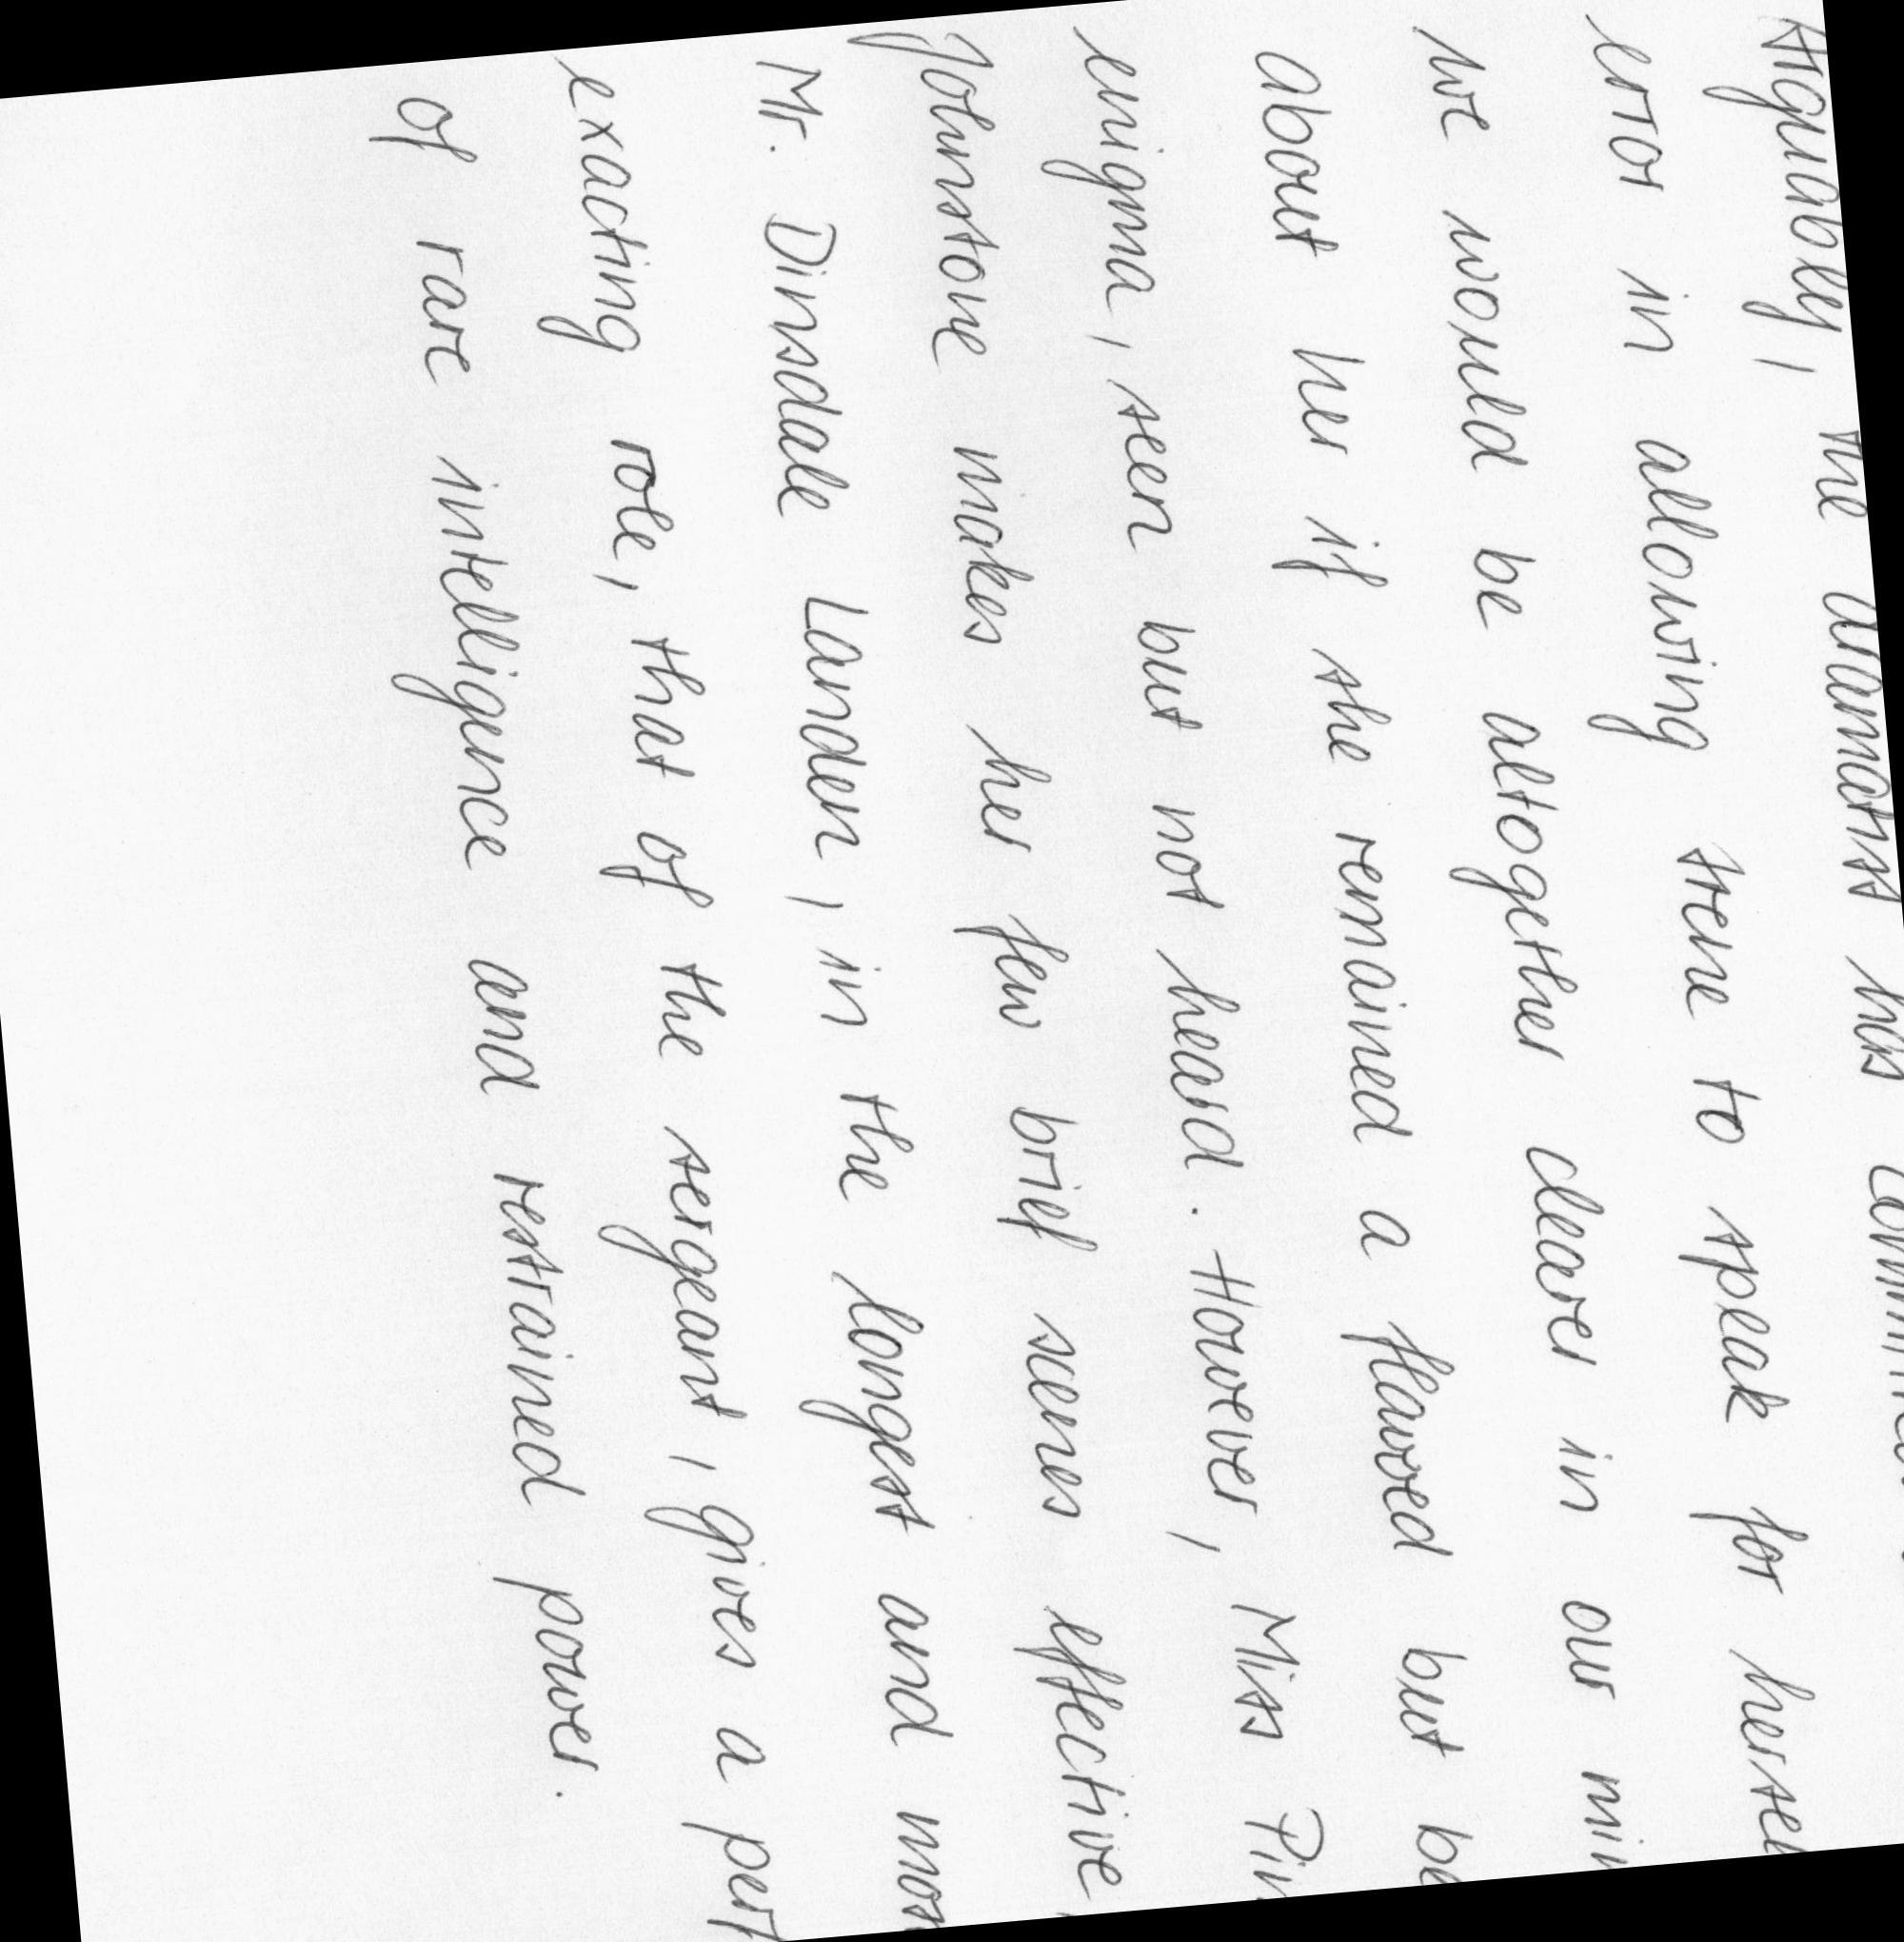 Arguably, the dramatist has
error in allowing Irene to speak for
we would be altogether clearer in our
about her if she remained a flawed but
enigma, seen but not heard. However, Miss
Johnstone makes her few brief scenes effective
Mr. Dinsdale Landen, in the longest and
exacting role, that of the sergeant, gives a
of rare intelligence and restrained power.